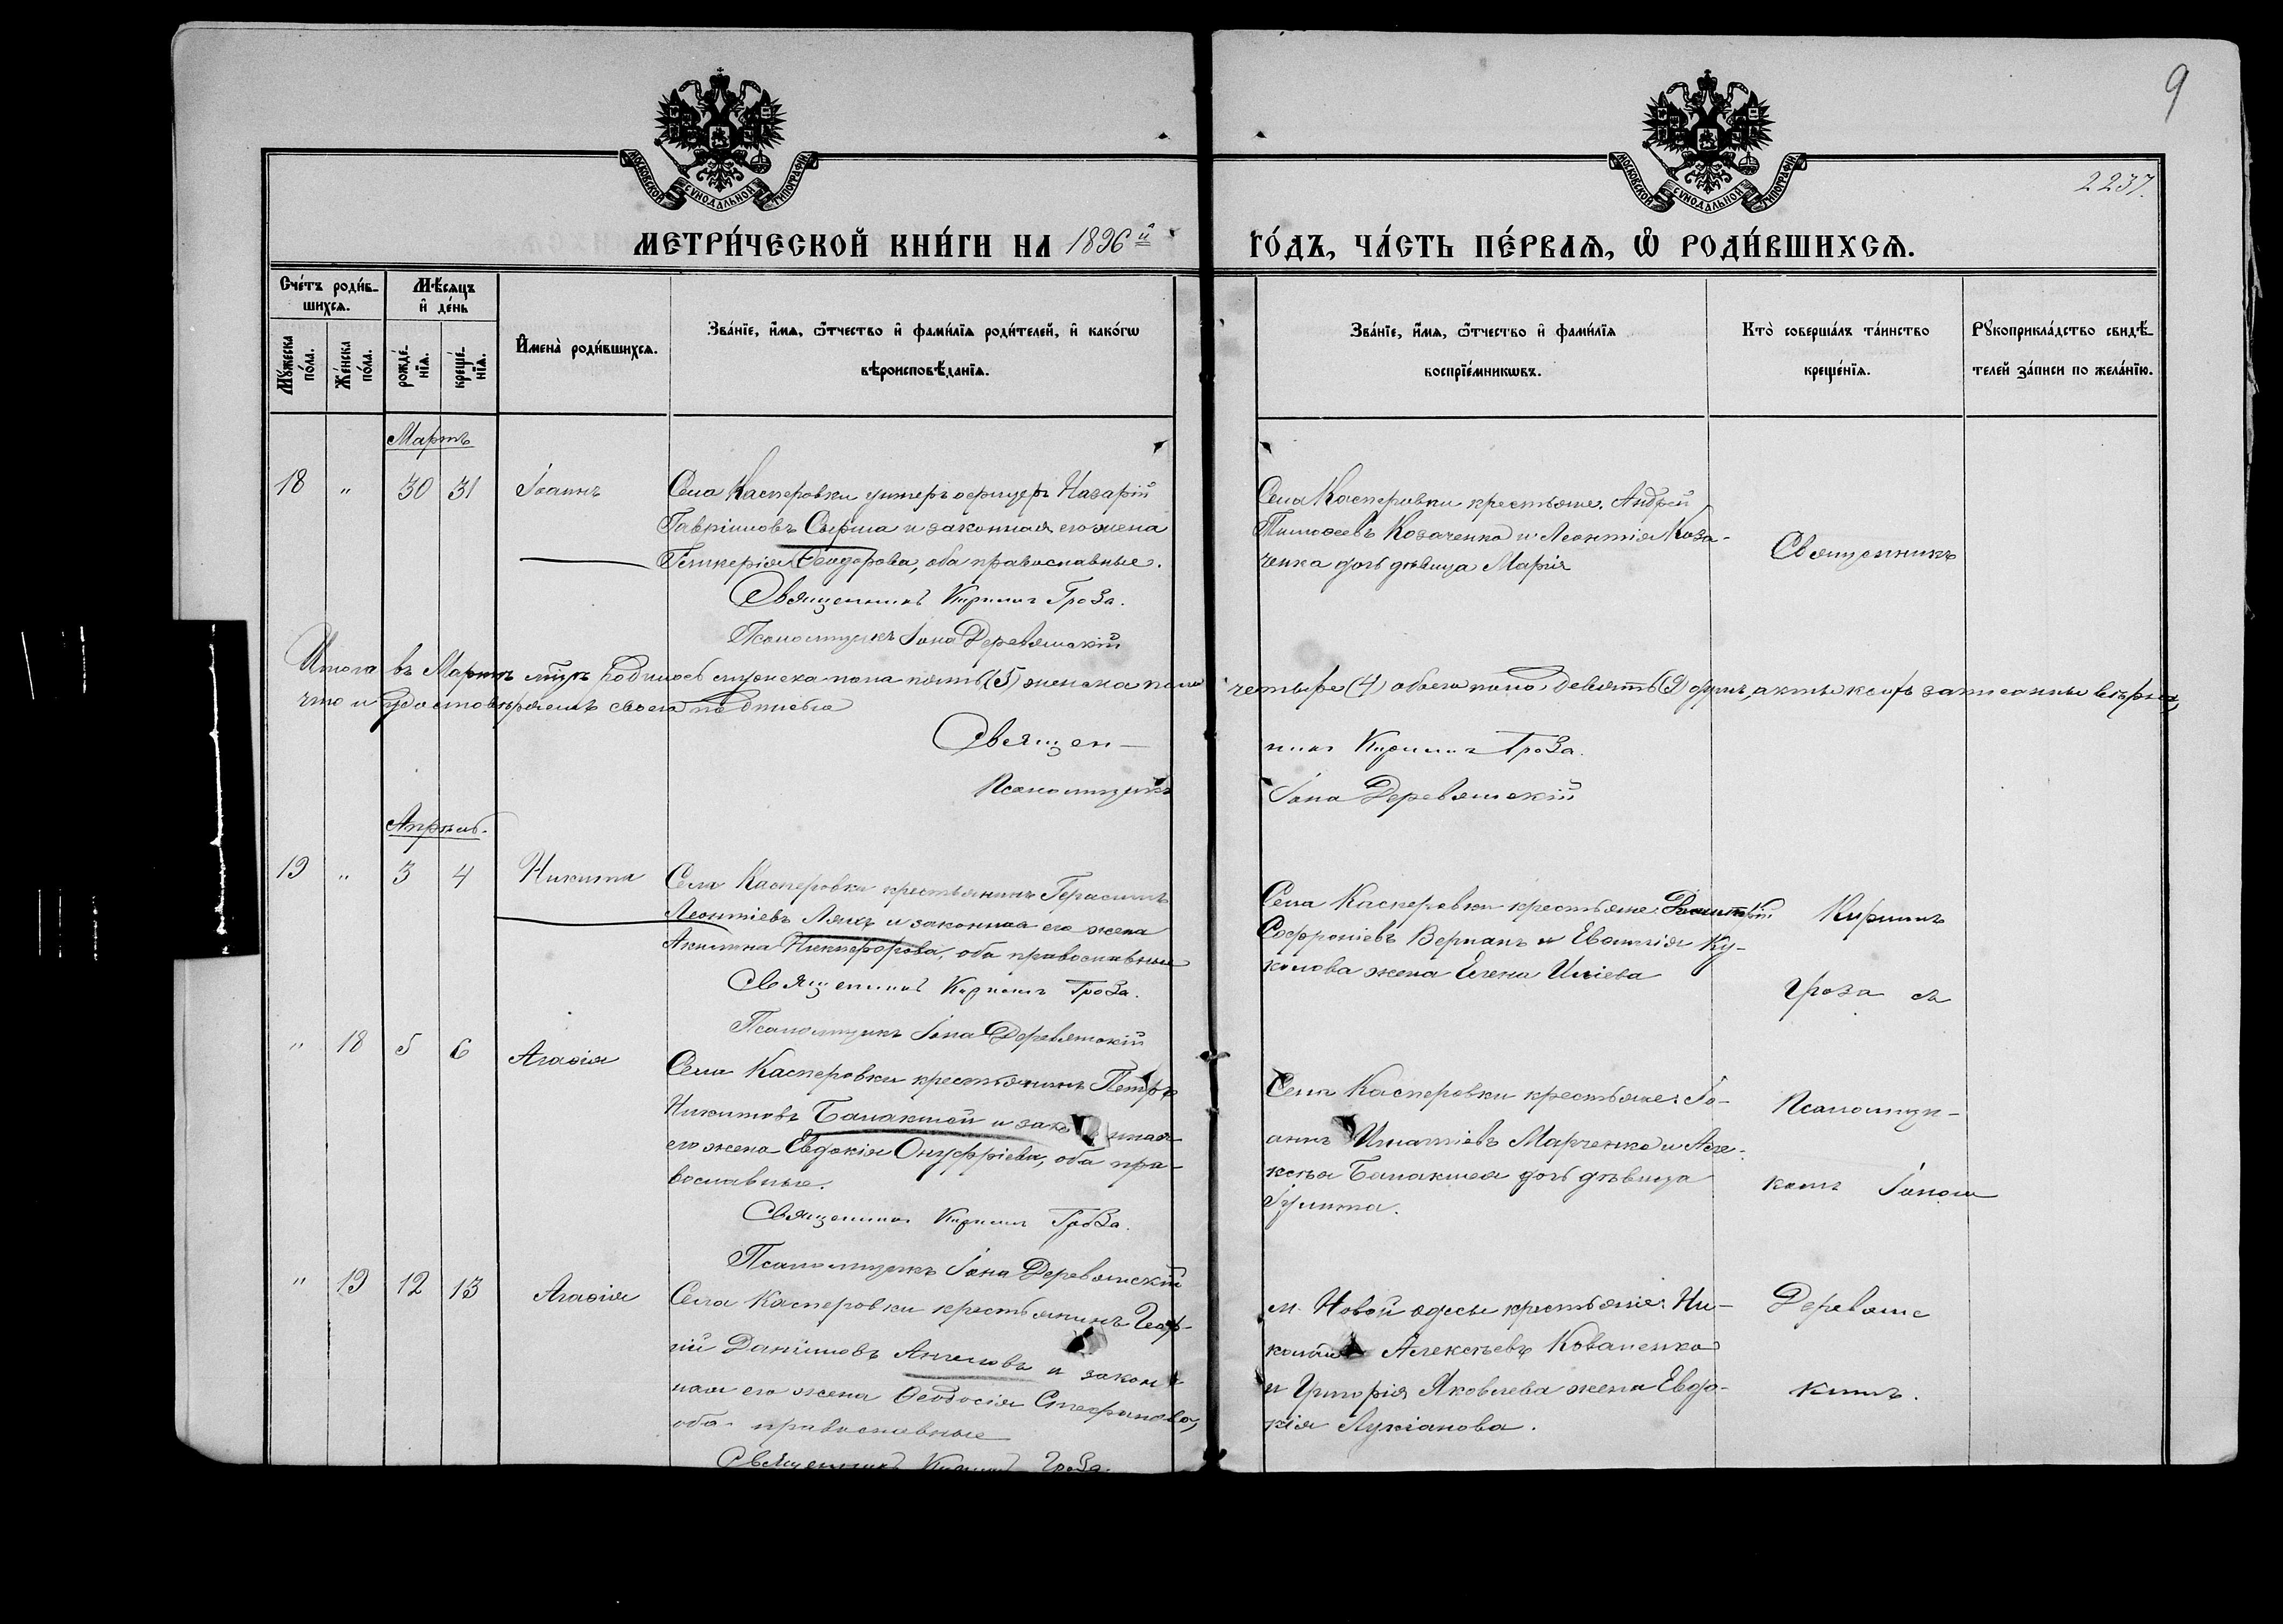 9
МОСКОВСКОЙ СѴНОДАЛЬНОЙ ТИПОГРАФІИ
МОСКОВСКОЙ СѴНОДАЛЬНОЙ ТИПОГРАФІИ
2237.
МЕТРИ́ЧЕСКОЙ КНИ́ГИ НА 1896й
ГО́ДЪ, ЧА́СТЬ ПЕ́РВАѦ, Ѡ РОДИ́ВШИХСѦ.
Сче́тъ роди́в-
шихсѧ.
Мꙋ́жеска по́ла.
Же́нска по́ла.
Мѣ́сѧцъ
и де́нь
рожде́-
нїѧ.
креще́-
нїѧ.
Имена̀ роди́вшихсѧ.
Зва́нїе, и́мѧ, ѻ́тчество и фами́лїѧ роди́телей, и како́гѡ
вѣроисповѣ́данїѧ.
Зва́нїе, и́мѧ, ѻ́тчество и фами́лїѧ
воспрїе́мникѡвъ.
Кто̀ соверша́лъ та́инство
креще́нїѧ.
Рꙋкоприкла́дство свидѣ́-
телей за́писи по жела́нїю.
Мартъ
18 " 30 31 Іоаннъ
Села Касперовки унтеръ офицеръ Назарій
Гавріиловъ Сырма и законная его жена
Гликерія Ѳеодорова, оба православные.
Священникъ Кириллъ Гроза.
Псаломщикъ Іона Деревянскій
Села Касперовки крестьяне: Андрей
Тимоѳеевъ Козаченко и Леонтія Коза-
ченка дочь дѣвица Марія
Священникъ
Итого въ Мартѣ м-цѣ родилось мужеска пола пять (5) женска пола четыре (4) обоего пола девять (9) душъ, акты коихъ записаны вѣрно,
что и удостовѣряемъ своею подписью
Священ-
никъ Кириллъ Гроза.
Псаломщикъ
Іона Деревянскій
Апрѣль.
19 " 3 4 Никита
Села Касперовки крестьянинъ Герасимъ
Леонтіевъ Ляхъ и законная его жена
Акилина Никифорова, оба православные
Священникъ Кириллъ Гроза.
Псаломщикъ Іона Деревянскій
Села Касперовки крестьяне:
Софроніевъ Верланъ и Евѳимія Ку-
колова жена Елена Иліева
Кириллъ
Гроза съ
" 18 5 6 Агаѳія
Села Касперовки крестьянинъ Петръ
Никитовъ Балакшей и законная
его жена Евдокія Онуфріева, оба пра-
вославные.
Священникъ Кириллъ Гроза.
Псаломщикъ Іона Деревянскій
Села Касперовки крестьяне: Іо-
аннъ Игнатіевъ Марченко и Але-
ксѣя Балакшея дочь дѣвица
Іулитта.
Псаломщи-
комъ Іоною
" 19 12 13 Агаѳія
Села Касперовки крестьянинъ Геор-
гій Даніиловъ Ангеловъ и закон-
ная его жена Ѳеодосія Стефанова,
оба православные
Священникъ Кириллъ Гроза.
м. Новой Одессы крестьяне: Ни-
колай Алексѣевъ Коваленко
и Григорія Яковлева жена Евдо-
кія Лукіанова.
Деревянс
кимъ.